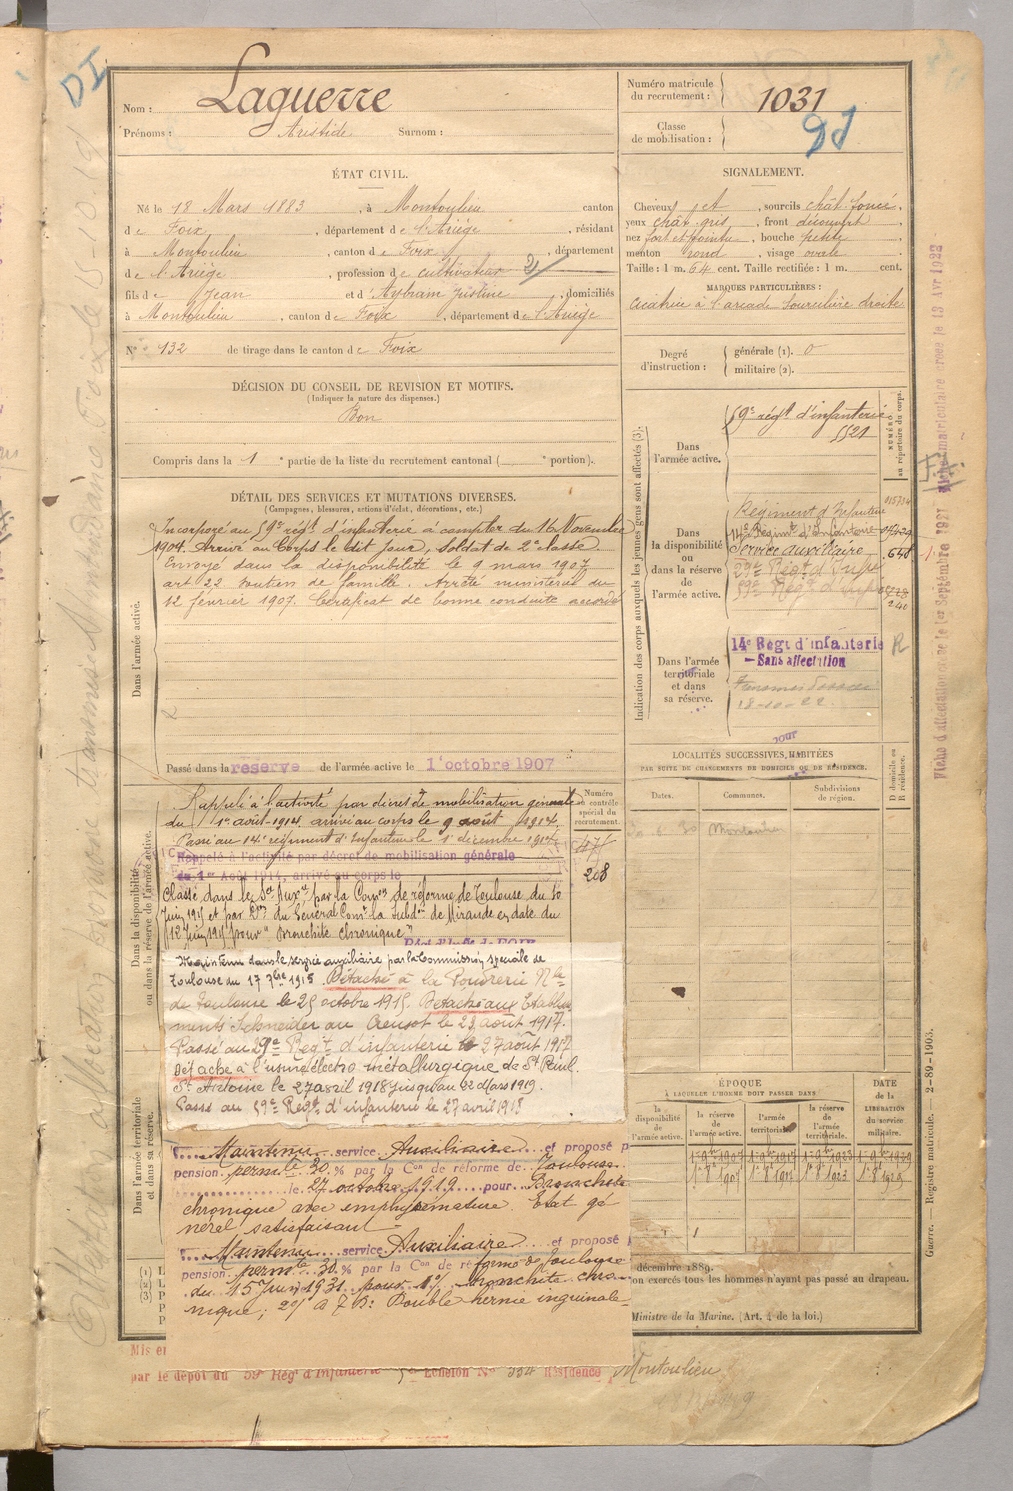 DI
Nom : Laguerre
Prénoms : Aristide Surnom :
Numéro matricule du recrutement : 1031
Classe de mobilisation :
ÉTAT CIVIL.
Né le 18 Mars 1883, à Montoulieu canton
de Foix, département de l'Ariège, résidant
à Montoulieu, canton de Foix, département
de l'Ariège, profession de cultivateur
fils de Jean et d'Aybram Justine, domiciliés
à Montoulieu, canton de Foix, département de l'Ariège
N° 132 de tirage dans le canton de Foix
SIGNALEMENT.
Cheveux et, sourcils chât. foncé,
yeux chât. gris, front découvert
nez fort et pointu, bouche petite
menton rond, visage ovale
Taille : 1 m. 64 cent. Taille rectifiée : 1 m. cent.
MARQUES PARTICULIÈRES :
cicatrice à l'arcade sourcilière droite
Degré d'instruction : générale (1). 0
militaire (2).
DÉCISION DU CONSEIL DE REVISION ET MOTIFS.
(Indiquer la nature des dispenses.)
Bon
Compris dans la 1e partie de la liste du recrutement cantonal ( e portion).
DÉTAIL DES SERVICES ET MUTATIONS DIVERSES.
(Campagnes, blessures, actions d'éclat, décorations, etc.)
Dans l'armée active.
Incorporé au 59e régt d'infanterie à compter du 16 Novembre
1904. Arrivé au Corps le dit jour, soldat de 2e classe.
Envoyé dans la disponibilité le 9 mars 1907
art 22 soutien de famille. Arrêté ministériel du
12 février 1907. Certificat de bonne conduite accordé
Passé dans la réserve de l'armée active le 1 octobre 1907
Dans la disponibilité ou dans la réserve de l'armée active.
Rappelé à l'activité par décret de mobilisation générale
du 1er août 1914. arrivé au corps le 9 août 1914.
Passé au 14e régiment d'Infanterie le 1e décembre 1914
Rappelé à l'activité par décret de mobilisation générale
du 1er Août 1914, arrivé au corps le
Classé dans le Sce Auxre par la Comon de réforme de Toulouse du 10
Juin 1915 et par Don du Général Comt la Subdon de Mirande en date du
12 Juin 1915 pour "Bronchite chronique"
Maintenu dans le service auxiliaire par la Commission spéciale de
Toulouse du 17 7bre 1915. Détaché à la Poudrerie Nle
de Toulouse le 25 octobre 1915. Détaché aux Etablis
ments Schneider au Creusot le 23 août 1917.
Passé au 29e Regt d'infanterie le 27 août 1917
Détaché à l'usine électro-métallurgique de St Paul.
St Antoine le 27 avril 1918 jusqu'au 22 Mars 1919.
Passé au 59e Regt d'infanterie le 27 avril 1918
Dans l'armée territoriale et dans sa réserve.
Maintenu service Auxiliaire et proposé p
pension permte 30 % par la Con de réforme de Toulouse
le 27 octobre 1919 pour Bronchite
chronique avec emphysémateuse. Etat gé
néral satisfaisant
Maintenu service Auxiliaire et proposé
pension permte 30 % par la Con de réforme de Toulouse
du 15 Juin 1931 pour 1°/ bronchite chro
nique; 2°/ Double hernie inguinale
Numéro au contrôle spécial du recrutement.
208
Indication des corps auxquels les jeunes gens sont affectés (3).
Dans l'armée active.
59e régt d'infanterie
5521
NUMÉRO au répertoire du corps.
Dans la disponibilité ou dans la réserve de l'armée active.
Régiment d'Infanterie
14e Régimt d'Infanterie
Service auxiliaire
648
29e Regt d'Infie
59e Regt d'Infie
Dans l'armée territoriale et dans sa réserve.
14e Régt d'infanterie
– Sans affectation
18-10-22
R
LOCALITÉS SUCCESSIVES HABITÉES
PAR SUITE DE CHANGEMENTS DE DOMICILE OU DE RÉSIDENCE.
Dates. Communes. Subdivisions de région.
D domicile ou R résidence.
Montoulieu
ÉPOQUE
À LAQUELLE L'HOMME DOIT PASSER DANS
la disponibilité de l'armée active.
la réserve de l'armée active.
l'armée territoriale.
la réserve de l'armée territoriale.
DATE de la LIBÉRATION du service militaire.
décembre 1889.
on exercés tous les hommes n'ayant pas passé au drapeau.
Ministre de la Marine. (Art. 4 de la loi.)
Mis en
par le dépôt du 59e Régt d'Infanterie Echelon N° 334 Résidence Montoulieu
Guerre. — Registre matricule. — 2-89-1903.